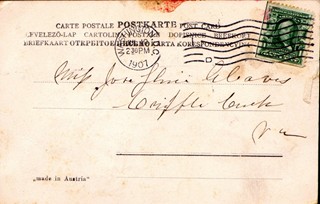 CARTE POSTALE POSTKARTE POST CARD
LEVELEZŐ-LAP CARTOLINA POSTALE DOPISNICE
BRIEFKAART ОТКРЫТОЕ ПИСЬМО KARTA KORESPONDENCYJNA
WASHINGTON, D.C.
1907
Miss Josephine Cleaves
Cripple Creek
Va
„made in Austria"